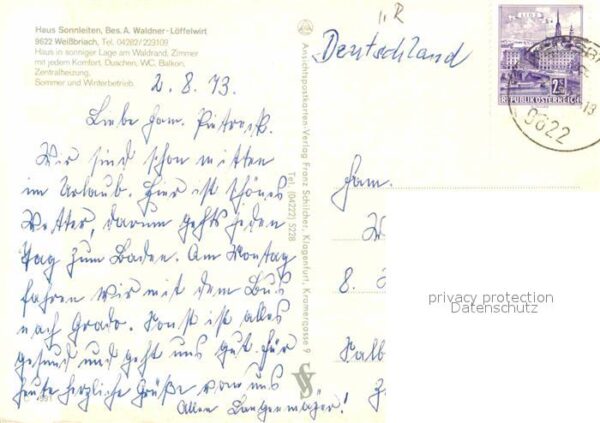 Haus Sonnleiten, Bes. A. Waldner-Löffelwirt
9622 Weißbriach, Tel. 04282/229109
Haus in sonniger Lage am Waldrand, Zimmer
mit jedem Komfort. Duschen, WC, Balkon,
Zentralheizung,
Sommer und Winterbetrieb.
2.8.73.
Liebe Fam.
Wir sind schon mitten
im Urlaub. Hier ist schönes
Wetter, darum gehts jeden
Tag zum Baden. Am Montag
fahren wir mit dem Bus
nach Grado. Sonst ist alles
gesund und geht uns gut. Für
heute herzliche Grüße von uns
Allen Langenmajer!
Ansichtspostkarten-Verlag Franz Schilcher, Klagenfurt, Kramergasse 9
Tel. (04222) 5228
Deutschland
LINZ
2S
REPUBLIK ÖSTERREICH
9622
Fam.
W
8.
privacy protection
Datenschutz